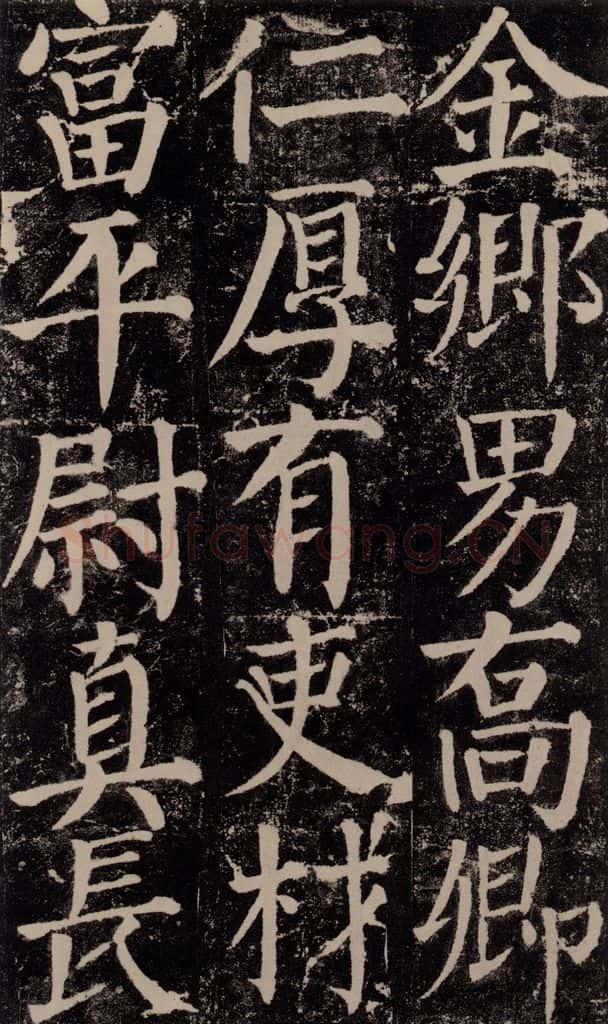 金鄉男喬卿
仁厚有吏材
富平尉真長
Shufawang.CN